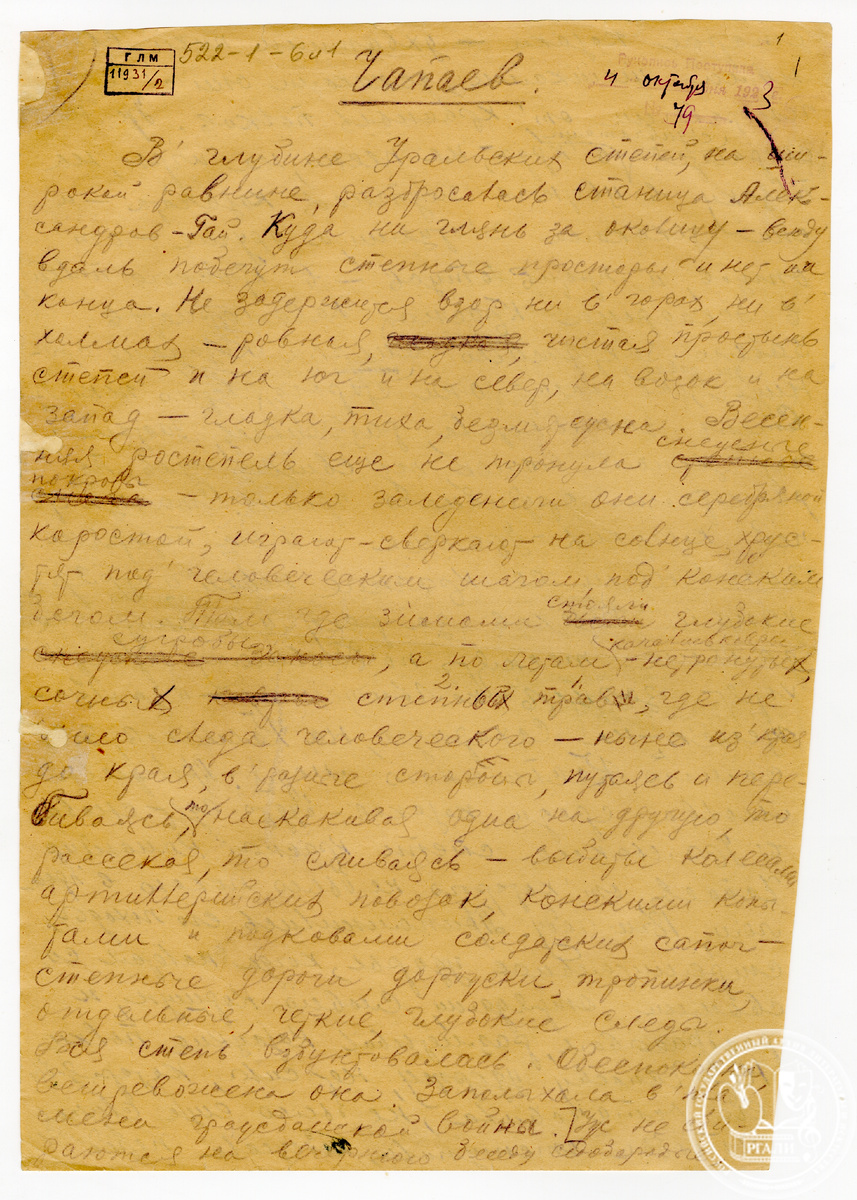 ГЛМ
11931/2
522-1-6 л 1
1
Чапаев.
4 октября
3
79
В глубине Уральских степей, на ши-
рокой равнине, разбросалась станица Алек-
сандров-Гай. Куда ни глянь за околицу – всюду
вдаль побегут степные просторы и нет им
конца. Не задержится взор ни в горах, ни в
холмах – ровная, чистая простынь
степей и на юг и на север, на восток и на
запад – гладка, тиха, безмятежна. Весен-
няя ростепель еще не тронула снежные
покровы – только заледенели они серебряной
коростой, играют-сверкают на солнце, хрус-
тят под человеческим шагом, под конским
бегом. Там где зимами стояли глубокие
сугробы, а по летам – нетронутых,
сочных степных трав, где не
было следа человеческого – ныне из края
до края, в разные стороны, путаясь и пере-
биваясь, то наскакивая одна на другую, то
рассекая, то сливаясь – выбиты колесами
артиллерийских повозок, конскими копы-
тами и подковами солдатских сапог –
степные дороги, дорожки, тропинки,
отдельные, четкие, глубокие следы.
Вся степь взбунтовалась.
встревожена она. Заполыхала в
гражданской война. Уж не
на беседу
РГАЛИ